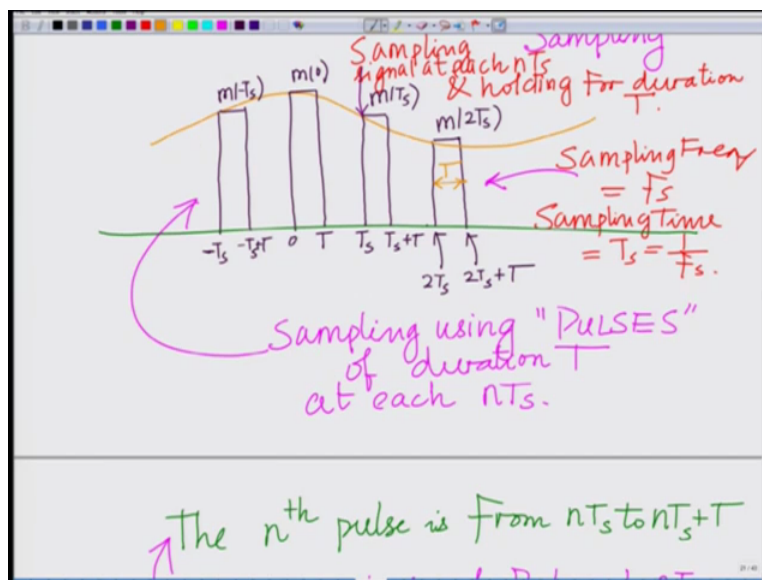 Sampling
Sampling
signal at each nTs
& holding For duration
T.
m(-Ts)
m(0)
m(Ts)
m(2Ts)
T
Sampling Freq
= Fs
Sampling Time
= Ts = 1/Fs.
-Ts
-Ts+T
0
T
Ts
Ts+T
2Ts
2Ts+T
Sampling using "PULSES"
of duration T
at each nTs.
The nth pulse is From nTs to nTs+T